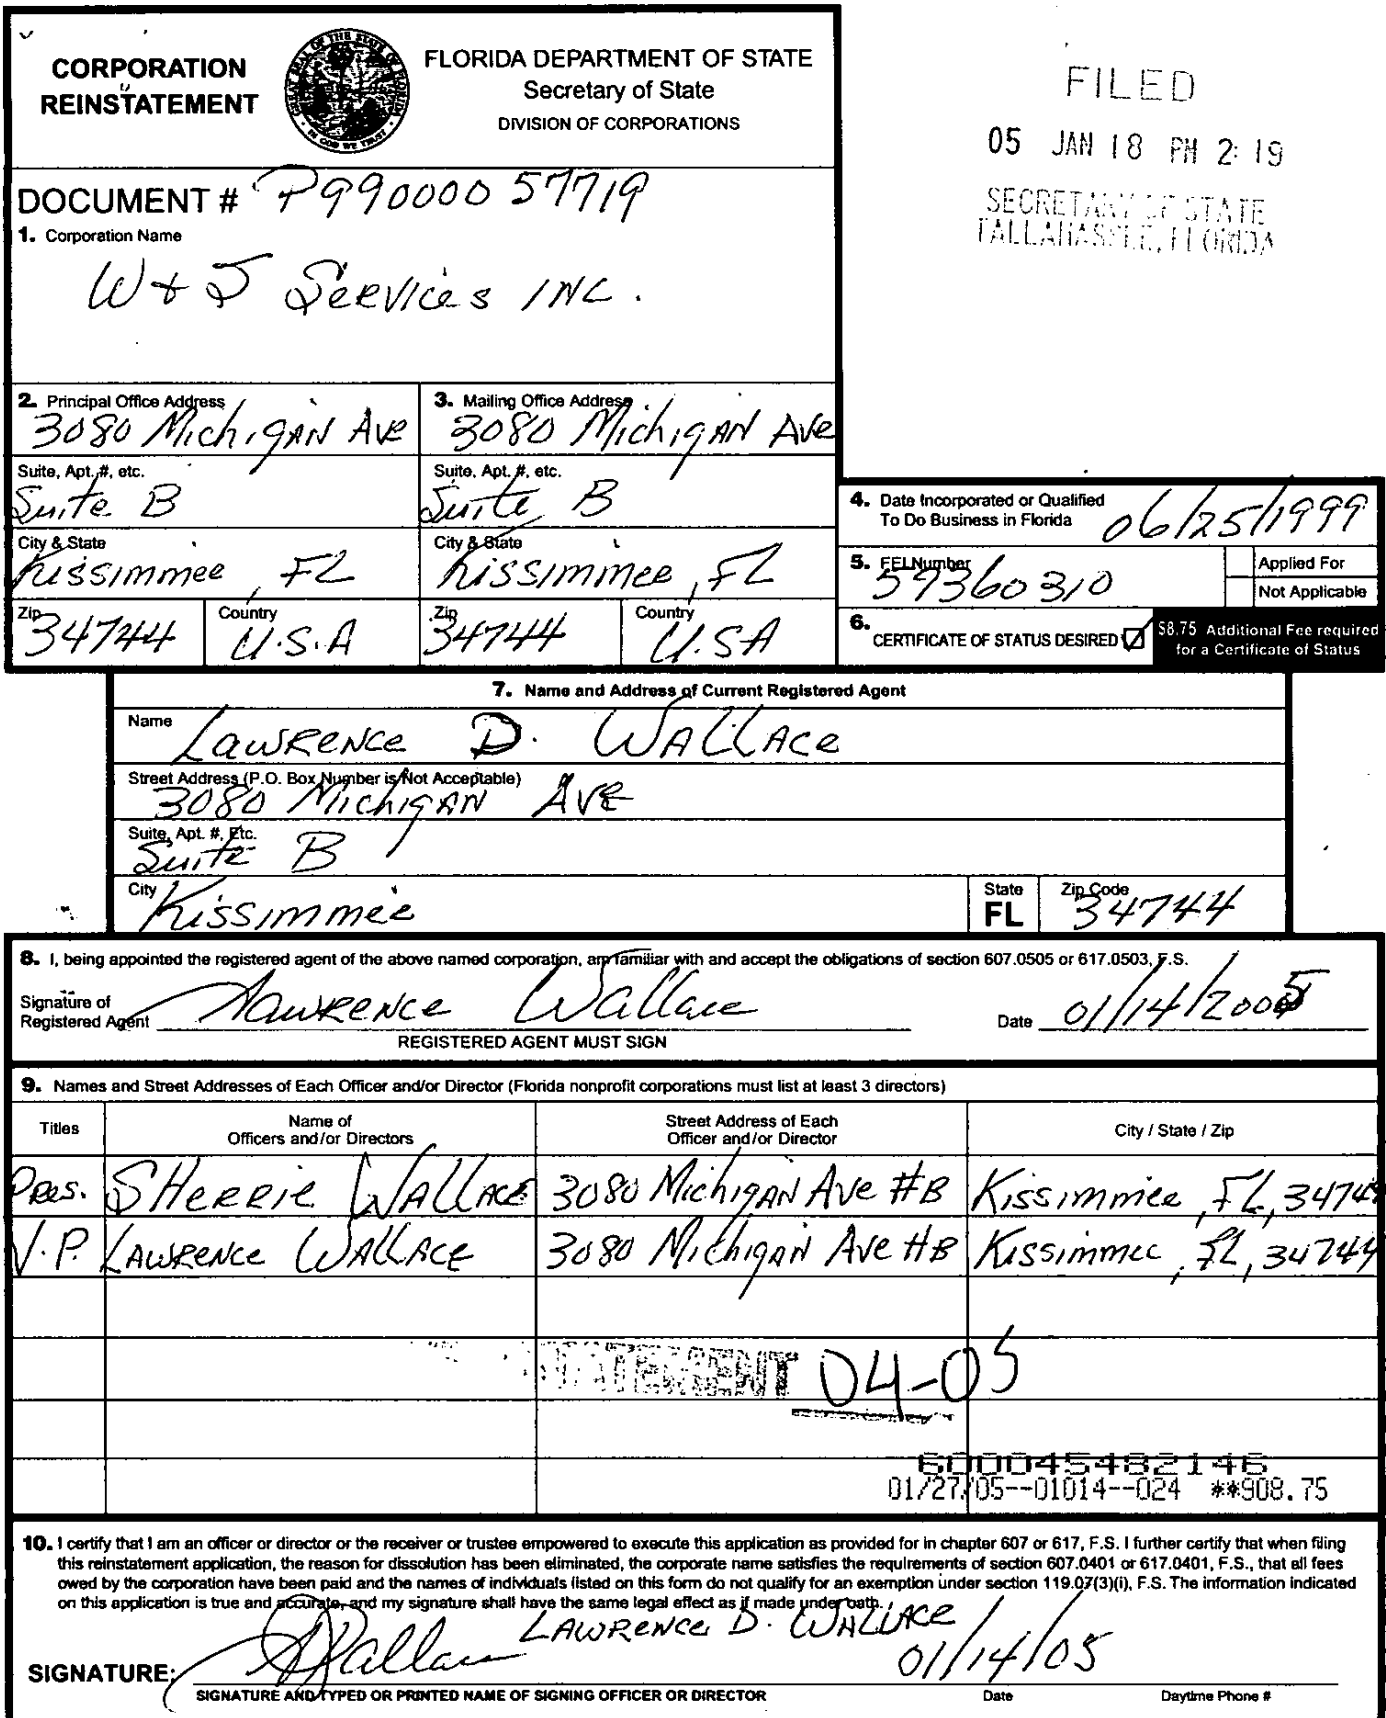 CORPORATION
REINSTATEMENT
FLORIDA DEPARTMENT OF STATE
Secretary of State
DIVISION OF CORPORATIONS
FILED
05 JAN 18 PM 2:19
SECRETARY OF STATE
TALLAHASSEE, FLORIDA
DOCUMENT # P99000057719
1. Corporation Name
W & J Services INC.
2. Principal Office Address
3080 Michigan Ave
3. Mailing Office Address
3080 Michigan Ave
Suite, Apt. #, etc.
Suite B
Suite, Apt. #, etc.
Suite B
City & State
Kissimmee, FL
City & State
Kissimmee, FL
Zip
34744
Country
U.S.A
Zip
34744
Country
U.SA
4. Date Incorporated or Qualified
To Do Business in Florida 06/25/1999
5. FEI Number
59360310
Applied For
Not Applicable
6. CERTIFICATE OF STATUS DESIRED ☑
$8.75 Additional Fee required
for a Certificate of Status
7. Name and Address of Current Registered Agent
Name
Lawrence D. Wallace
Street Address (P.O. Box Number is Not Acceptable)
3080 Michigan Ave
Suite, Apt. #, Etc.
Suite B
City
Kissimmee
State
FL
Zip Code
34744
8. I, being appointed the registered agent of the above named corporation, am familiar with and accept the obligations of section 607.0505 or 617.0503, F.S.
Signature of
Registered Agent Lawrence Wallace Date 01/14/2005
REGISTERED AGENT MUST SIGN
9. Names and Street Addresses of Each Officer and/or Director (Florida nonprofit corporations must list at least 3 directors)
Titles
Name of
Officers and/or Directors
Street Address of Each
Officer and/or Director
City / State / Zip
Pres. SHerrie Wallace 3080 Michigan Ave #B Kissimmee, FL, 34744
V.P. Lawrence Wallace 3080 Michigan Ave #B Kissimmee, FL, 34744
04-05
600045482146
01/27/05--01014--024 **908.75
10. I certify that I am an officer or director or the receiver or trustee empowered to execute this application as provided for in chapter 607 or 617, F.S. I further certify that when filing
this reinstatement application, the reason for dissolution has been eliminated, the corporate name satisfies the requirements of section 607.0401 or 617.0401, F.S., that all fees
owed by the corporation have been paid and the names of individuals listed on this form do not qualify for an exemption under section 119.07(3)(i), F.S. The information indicated
on this application is true and accurate, and my signature shall have the same legal effect as if made under oath.
Lawrence D. Wallace
SIGNATURE: Wallace 01/14/05
SIGNATURE AND TYPED OR PRINTED NAME OF SIGNING OFFICER OR DIRECTOR
Date
Daytime Phone #